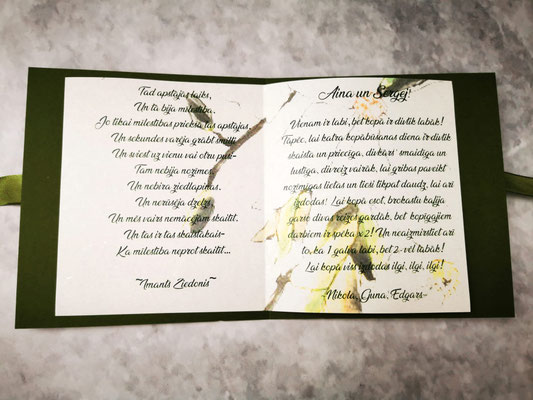 Tad apstājas laiks,
Un tā bija mīlestība.
Jo tikai mīlestības priekšā tas apstājas,
Un sekundes varēja grābt smilti
Un sviest uz vienu vai otru pusi-
Tam nebija nozīmes
Un nebira ziedlapiņas.
Un nerūsēja dzelzs
Un mēs vairs nemācējām skaitīt.
Un tas ir tas skaistākais-
Ka mīlestība neprot skaitīt...
~Imants Ziedonis~
Aina un Sergej!
Vienam ir labi, bet kopā ir divtik labāk!
Tāpēc, lai katra kopābūšanas diena ir divtik
skaista un priecīga, divkārš' smaidīga un
lustīga, divreiz vairāk, lai gribas paveikt
nozīmīgas lietas un tieši tikpat daudz, lai arī
izdodas! Lai kopā esot, brokastu kafija
garšo divas reizes gardāk, bet kopīgajiem
darbiem ir spēka x2! Un neaizmirstiet arī
to, ka 1 galva labi, bet 2-vēl labāk!
Lai kopā viss izdodas ilgi, ilgi, ilgi!
~Nikola, Guna, Edgars~